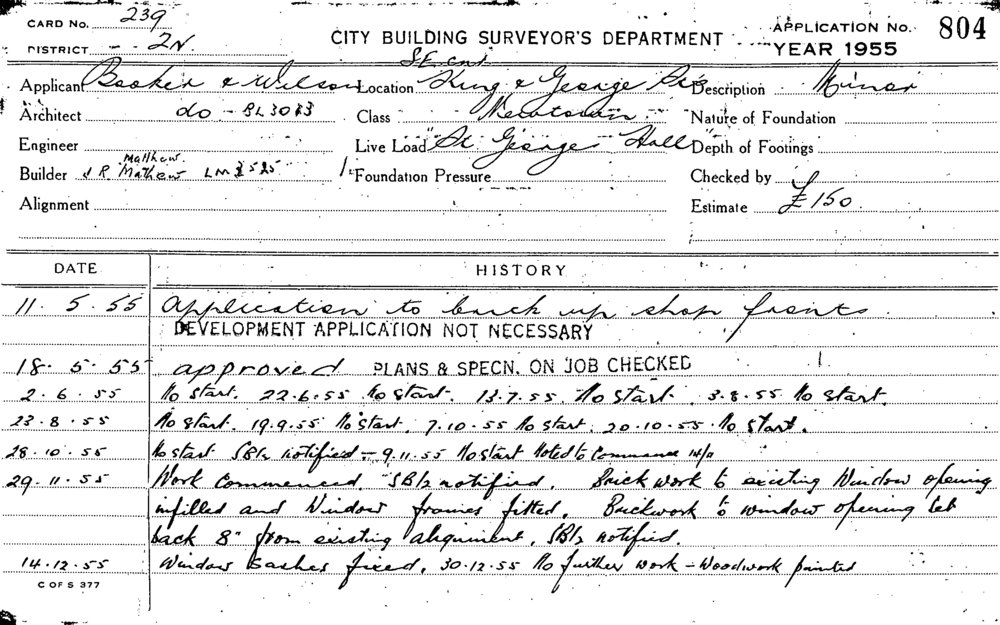 CARD No. 239
DISTRICT 2N.
CITY BUILDING SURVEYOR'S DEPARTMENT
APPLICATION No. 804
YEAR 1955
Applicant Booker & Wilson Location King & George Sts Description Minor
Architect do - BL3083 Class Newtown Nature of Foundation
Engineer Live Load "St. Georges Hall Depth of Footings
Matthew.
Builder J R. Mathew LM Foundation Pressure Checked by
Alignment Estimate £150
DATE HISTORY
11. 5. 55 Application to brick up shop fronts.
DEVELOPMENT APPLICATION NOT NECESSARY
18. 5. 55 approved PLANS & SPECN. ON JOB CHECKED
2. 6. 55 No start. 22.6.55 No start. 13.7.55. No start. 3.8.55 No start.
23. 8. 55 No start. 19.9.55 No start. 7.10.55 No start. 20.10.55 No start.
28. 10. 55 No start notified - 9.11.55 No start Noted to Commence
29. 11. 55 Work Commenced. notified. Brickwork to existing Window opening
infilled and Window frames fitted. Brickwork to window opening set
back 8" from existing alignment. notified.
14. 12. 55 Window sashes fixed. 30.12.55 No further work - Woodwork painted
C OF S 377